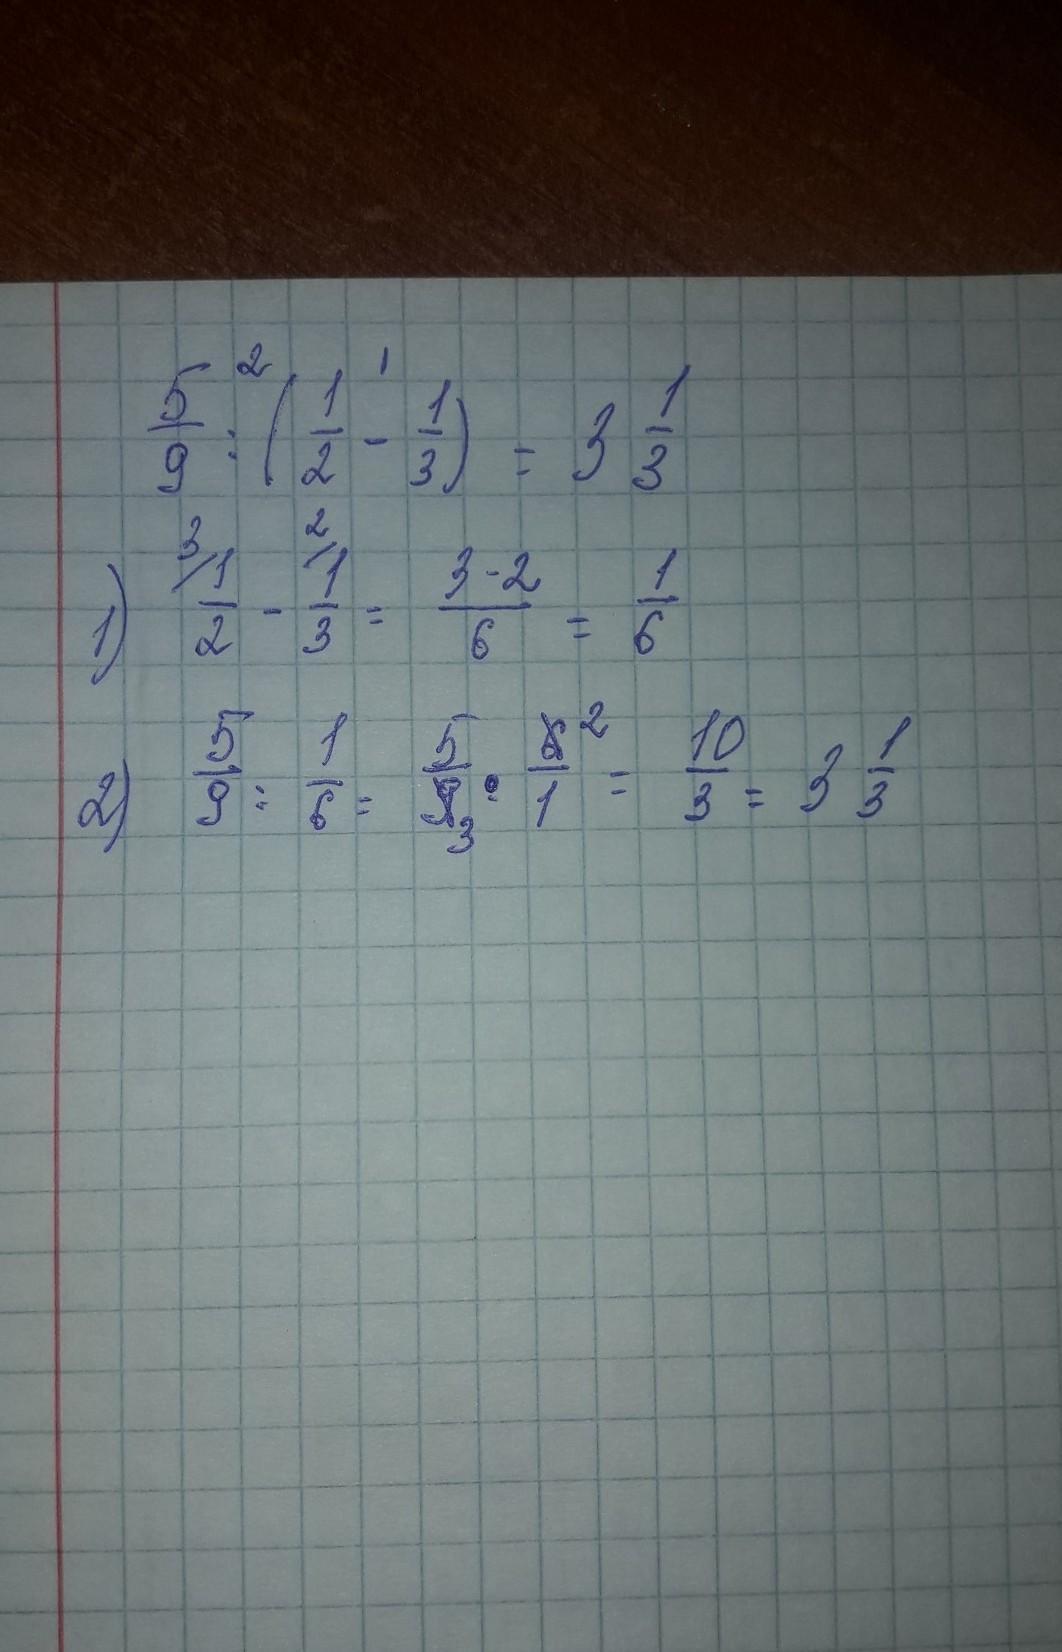 5/9 :² (1/2 -¹ 1/3) = 3 1/3
1) ³/1/2 - ²/1/3 = 3-2/6 = 1/6
2) 5/9 : 1/6 = 5/9₃ · 6²/1 = 10/3 = 3 1/3